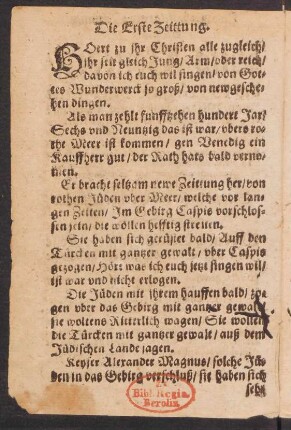 Die Erste Zeittung.
HOert zu ihr Christen alle zugleich/
ihr seit gleich Jung/ Arm/ oder reich/
davon ich euch wil singen/ von Got-
tes Wunderwerck so groß/ von newgesche-
hen dingen.
Als man zehlt funffzehen hundert Jar/
Sechs vnd Neunzig das ist war/ vbers ro-
the Meer ist kommen/ gen Venedig ein
Kauffherr gut/ der Rath hats bald verno-
men.
Er bracht seltzam newe Zeittung her/ von
rothen Jüden vber Meer/ welche vor lan-
gen Zeiten/ Im Gebirg Caspis vorschlos-
sen sein/ die wöllen helfftig streitten.
Sie haben sich gerüstet bald/ Auff den
Türcken mit gantzer gewalt/ vber Caspis
gezogen/ Hört was ich euch jetzt singen wil/
ist war vnd nicht erlogen.
Die Jüden mit ihrem hauffen bald/ zo-
gen vber das Gebirg mit gantzer gewalt
sie woltens Ritterlich wagen/ Sie wollen
die Türcken mit gantzer gewalt/ auß dem
Jüdischen Lande jagen.
Keyser Alexander Magnus/ solche Jü-
den in das Gebirg verschluß/ sie haben sich
sehr
Ex
Bibl. Regia
Berolin.